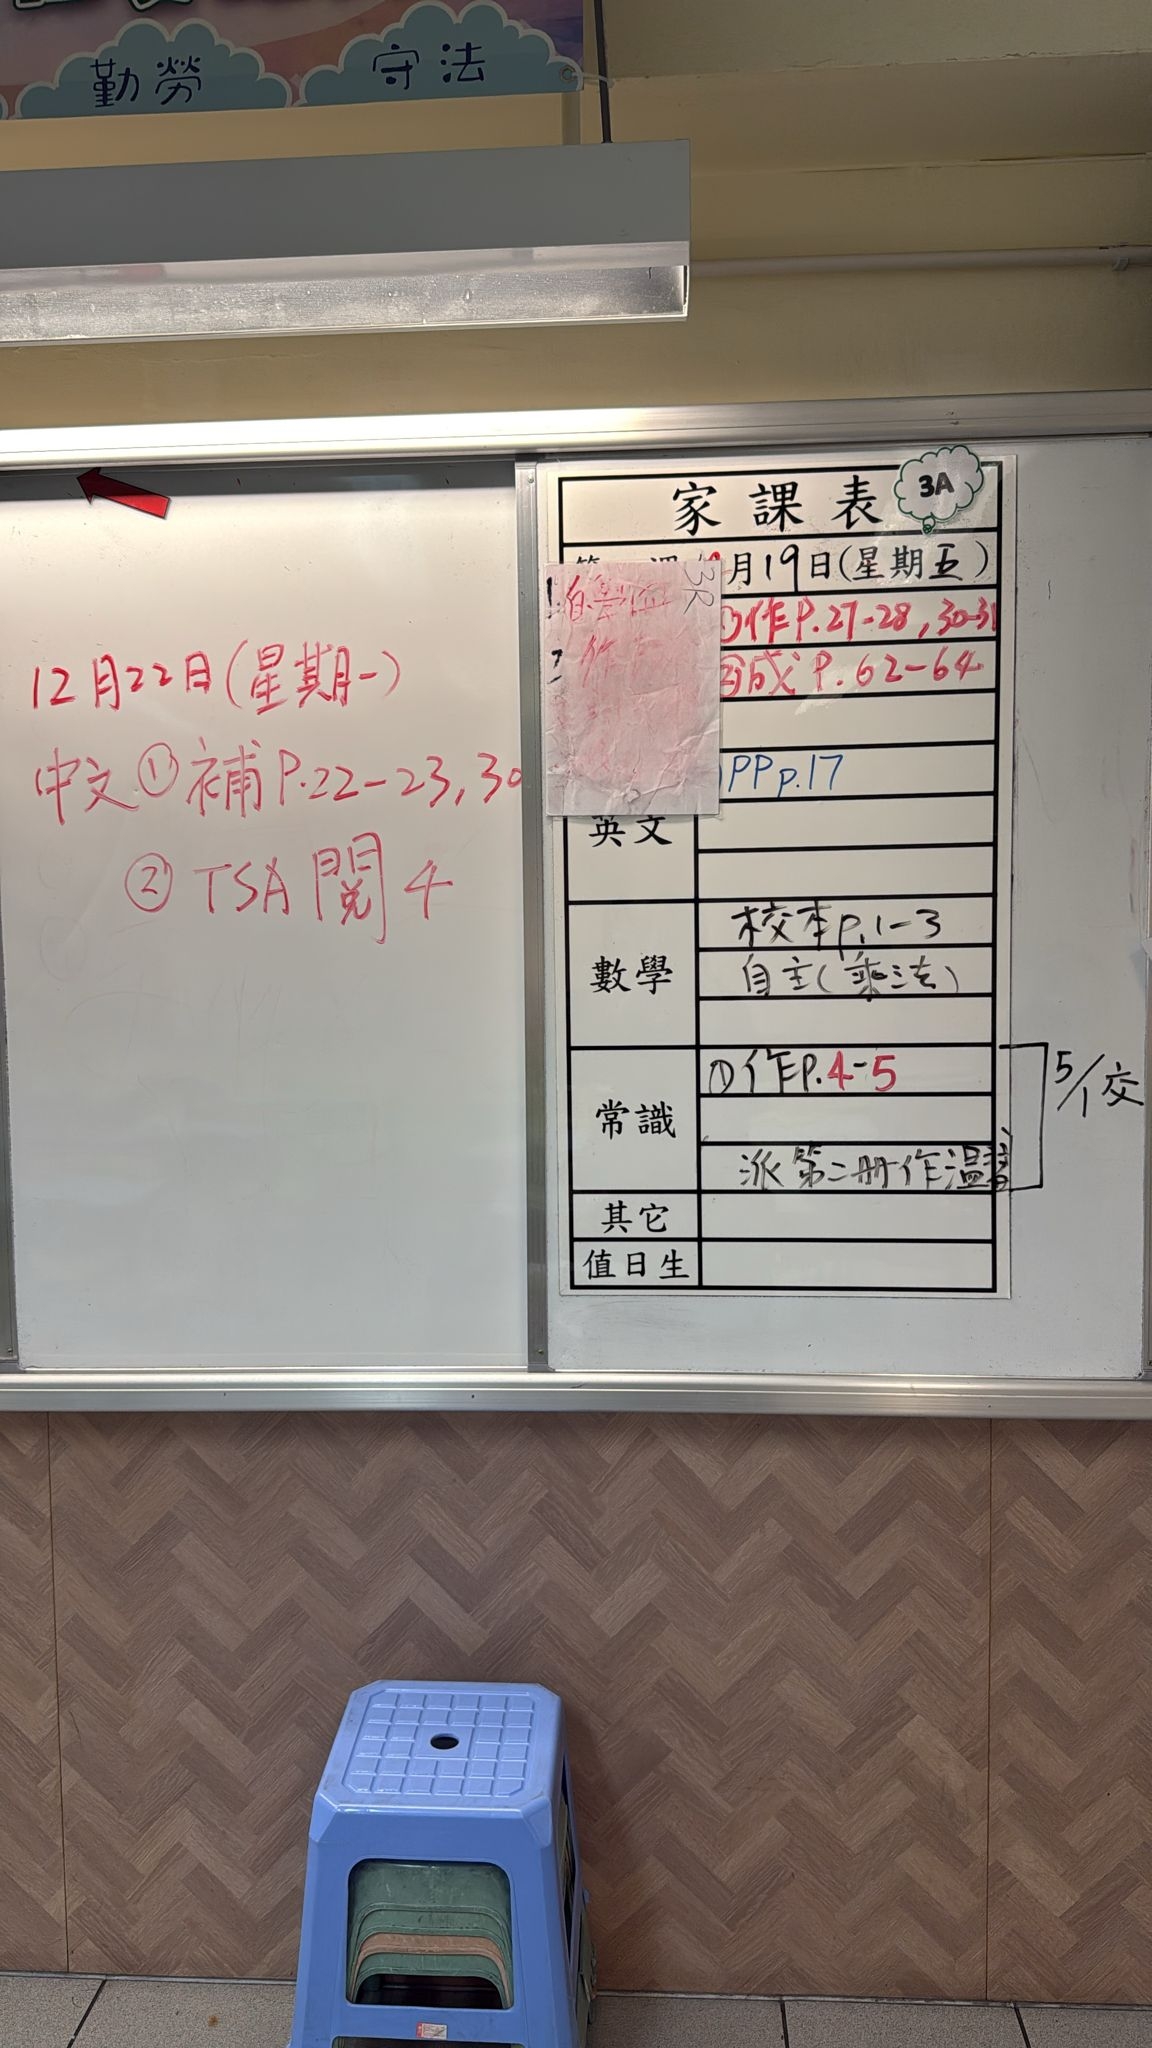 勤勞 守法
12月22日(星期一)
中文 ① 補 P.22-23, 30
② TSA 閱 4
家課表
3A
月19日(星期五)
作 P.27-28, 30-31
P.62-64
PP p.17
英文
數學
校本 p.1-3
自主(乘法)
常識
①作P.4-5
派第二冊作溫書
5/1交
其它
值日生